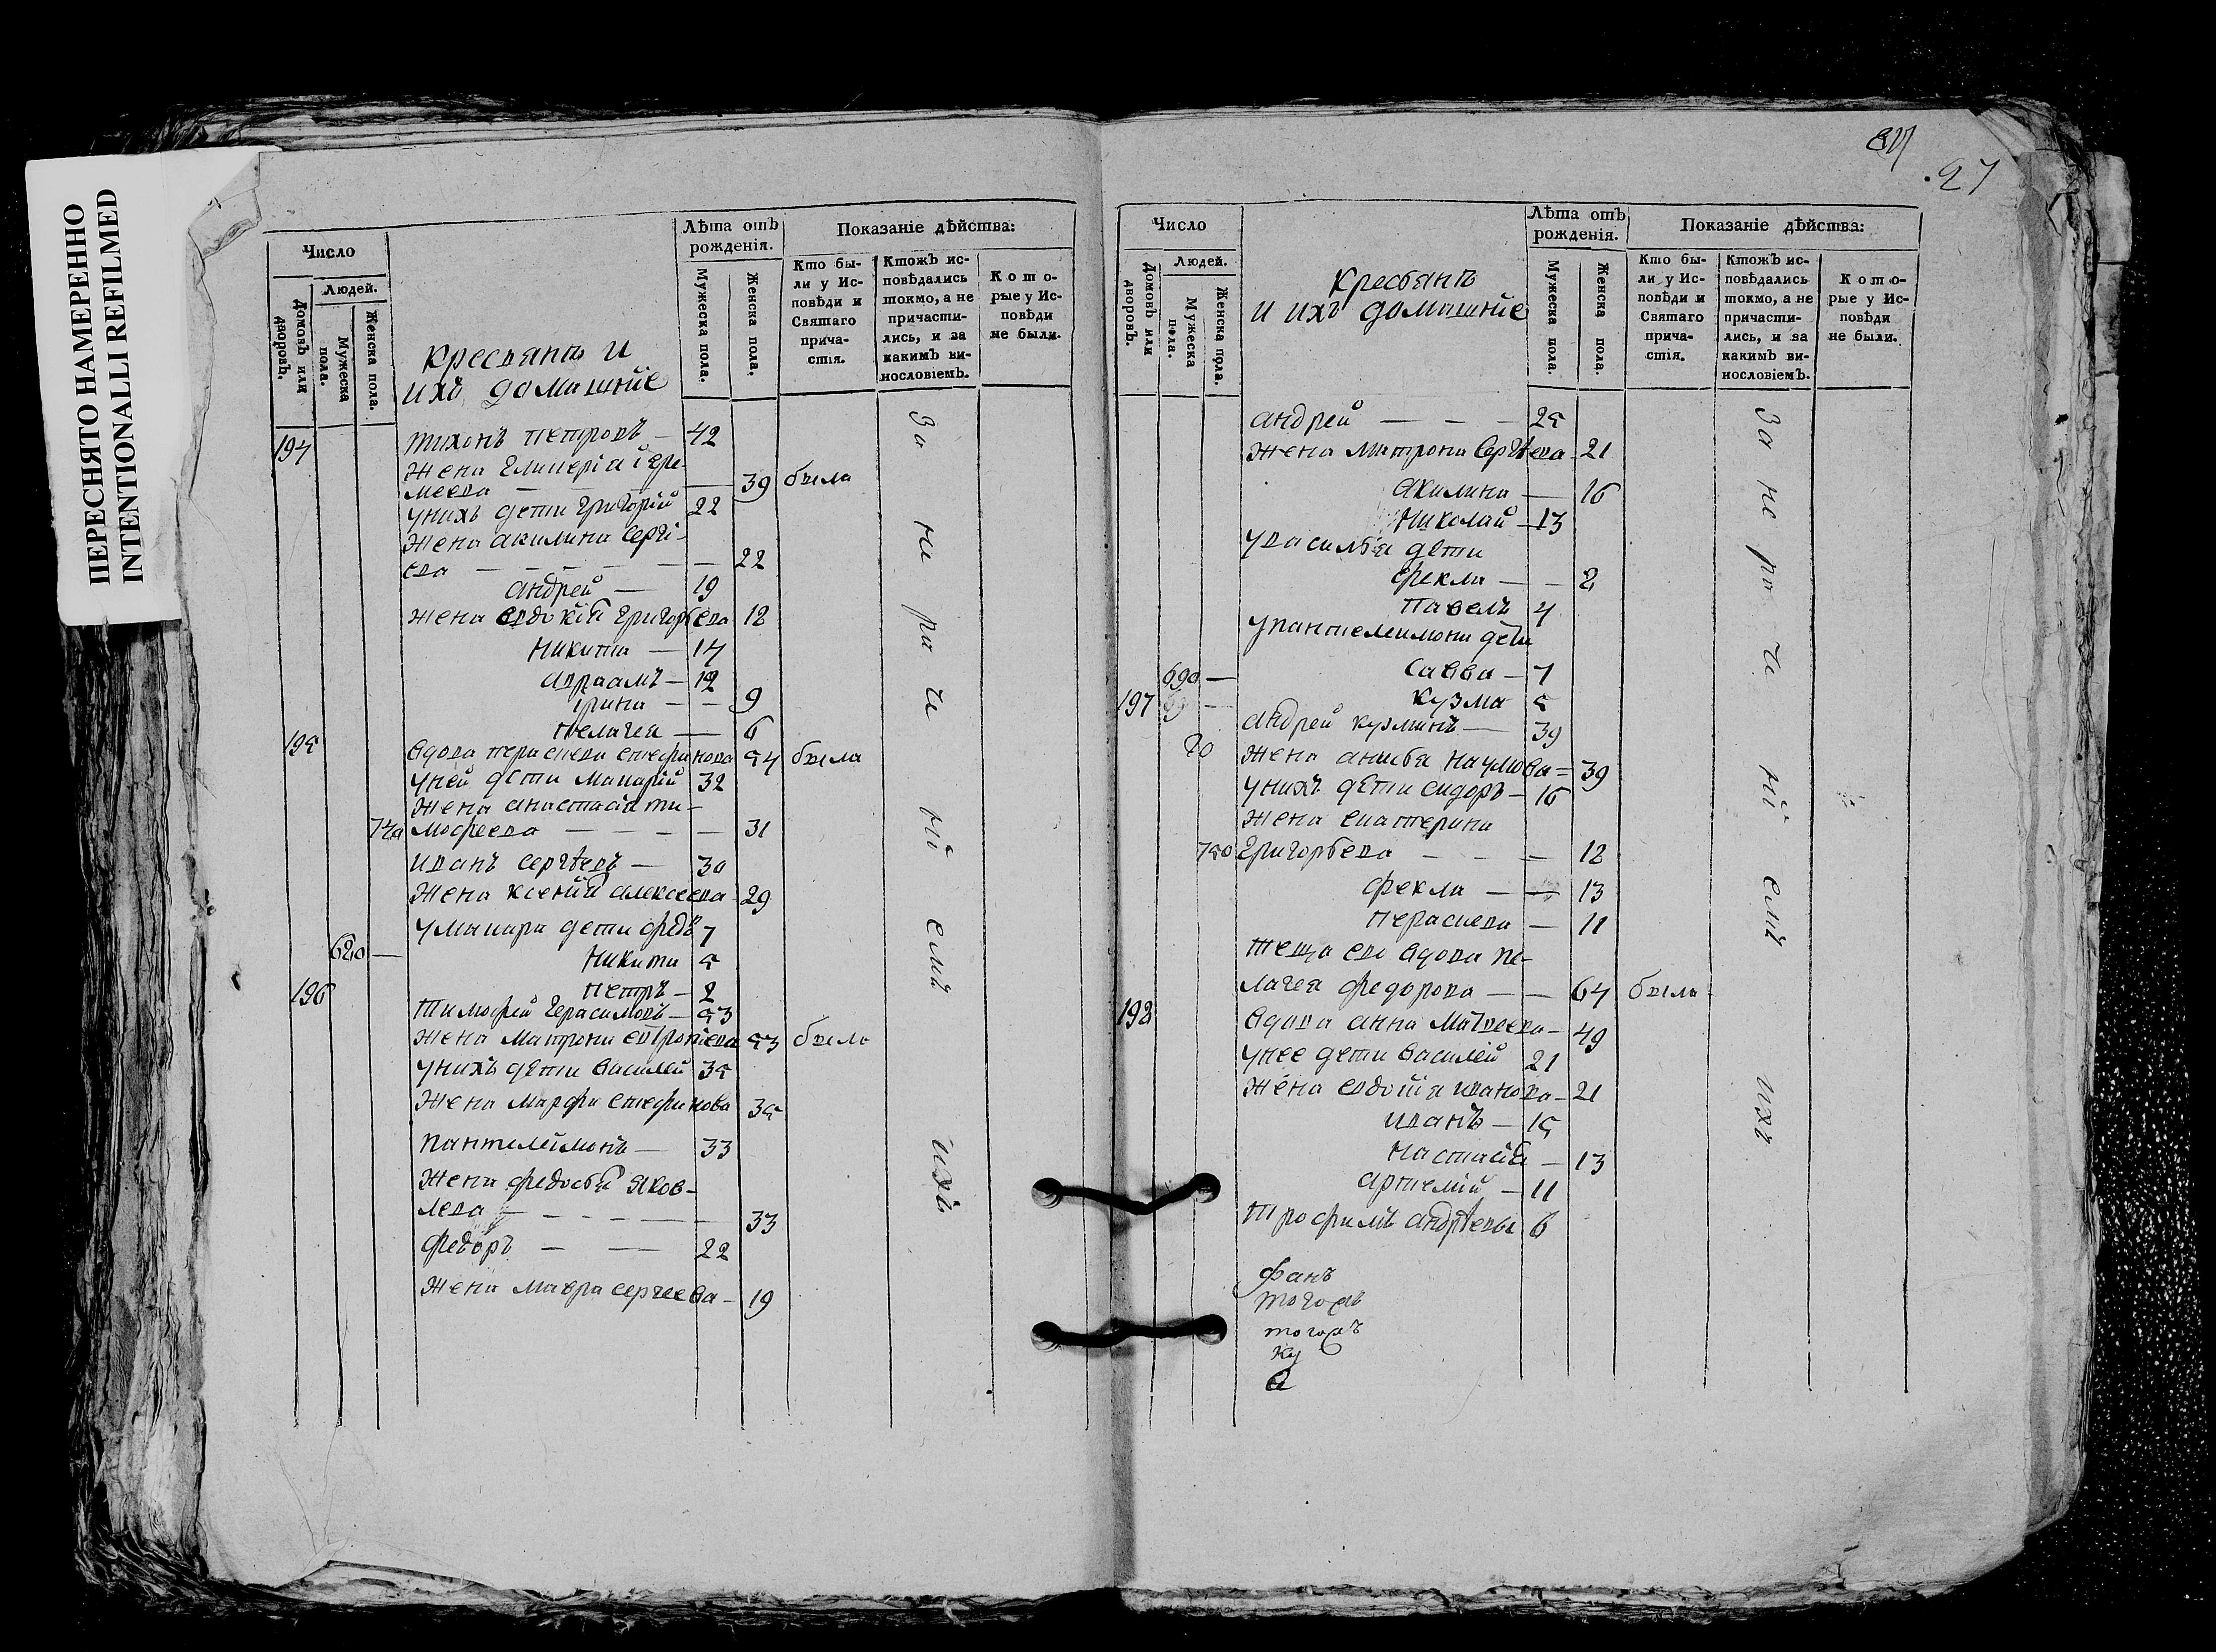 ПЕРЕСНЯТО НАМЕРЕННО
INTENTIONALLI REFILMED
Число
Людей.
Домовъ или дворовъ.
Мужеска пола.
Женска пола.
крестьянъ и
ихъ домашніе
Лѣта отъ
рожденія.
Мужеска пола.
Женска пола.
Показаніе дѣйства:
Кто бы-
ли у Ис-
повѣди и
Святаго
прича-
стія.
Ктожъ ис-
повѣдались
токмо, а не
причасти-
лись, и за
какимъ ви-
нословіемъ.
Кото-
рые у Ис-
повѣди
не были.
194 Тихонъ петровъ — 42
Жена
меева — 39 была
унихъ дети григорій 22
Жена акилина серги-
ева — 22
андрей — 19
жена евдокія григорьева 18
Никита — 14
авраамъ — 12
ірина — 9
пелагея — 6
195 вдова пераскева стефанова 54 была
уней дети макарій 32
жена анастасія ти-
740 мофеева — 31
иванъ сергѣевъ — 30
жена ксенія алексеева 29
умакара дети 7
680 — Никита 5
петръ — 2
196 Тимофей герасимовъ — 53
жена матрона 53 была
унихъ дѣти василей 35
жена марфа стефанова 35
пантелеймонъ — 33
жена федосья яков-
лева — 33
федоръ — 22
жена мавра сергеева — 19
За не ра че ні емъ ихъ
27
Число
Людей.
Домовъ или дворовъ.
Мужеска пола.
Женска пола.
крестьянъ
и ихъ домашніе
Лѣта отъ
рожденія.
Мужеска пола.
Женска пола.
Показаніе дѣйства:
Кто бы-
ли у Ис-
повѣди и
Святаго
прича-
стія.
Ктожъ ис-
повѣдались
токмо, а не
причасти-
лись, и за
какимъ ви-
нословіемъ.
Кото-
рые у Ис-
повѣди
не были.
андрей — — — 25
жена матрона сергѣева 21
акилина — 16
Николай — 13
увасилья дети
фекла — — 2
павелъ 4
упантелеимона дети
690 — савва — 7
197 кузма 5
андрей кузминъ — 39
жена наумова = 39
унихъ дети сидоръ — 16
жена екатерина
750 григорьева — 18
фекла — — 13
пераскева — 11
теща ево вдова пе-
лагея федорова — — 64 была
198 вдова анна матвеева — 49
унее дети василей 21
жена иванова — 21
иванъ — 15
настасія — 13
артемій — 11
трофимъ андрѣевъ 6
За не ра че ні емъ ихъ
ку